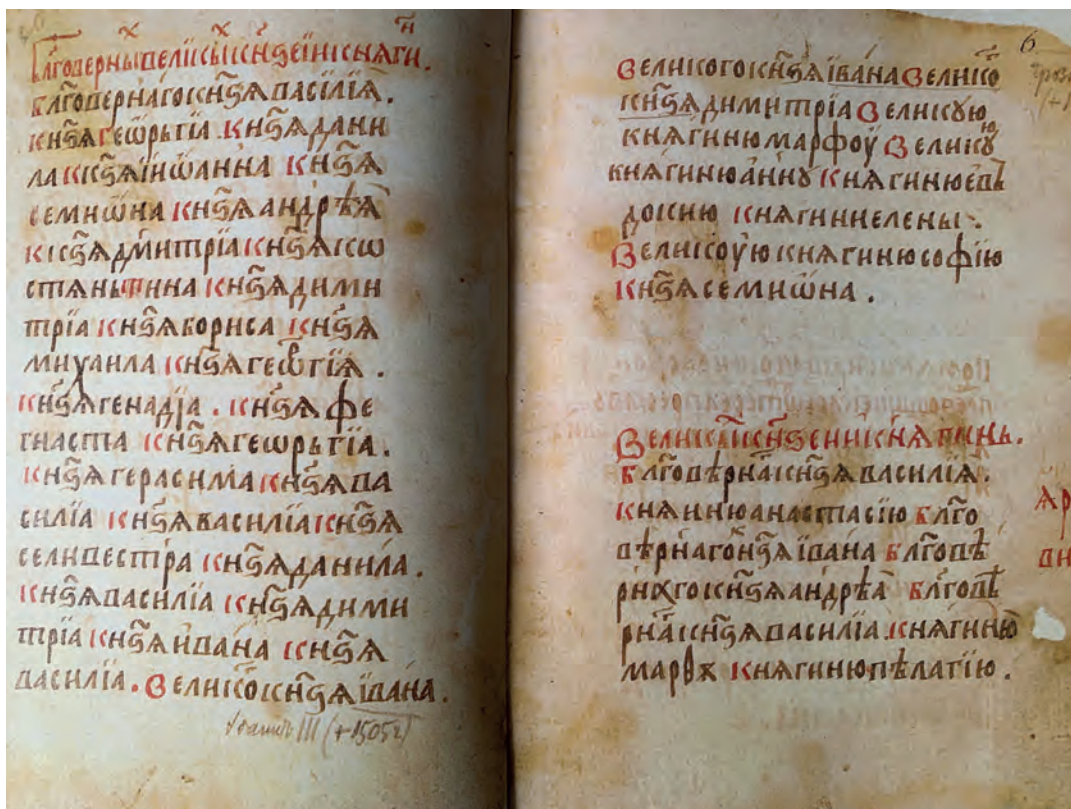 Бл҃говерныⷯ великиⷯ кн҃ѕеи и княгиⷩ.
бл҃говернаго кн҃ѕѧ василїѧ.
кн҃ѕѧ геѡрьгїа кн҃ѕѧ дани
ла кн҃ѕѧ їиѡанна кн҃ѕѧ
семиѡна кн҃ѕѧ андрѣѧ
кн҃ѕѧ дмитрїа кн҃ѕѧ кѡ
стяньтина кн҃ѕѧ дими
трїа кн҃ѕѧ бориса кн҃ѕѧ
михаила кн҃ѕѧ геѡⷬгїѧ.
кн҃ѕѧ генадїа. кн҃ѕѧ фе
гнаста кн҃ѕѧ геѡрьгїа.
кн҃ѕѧ герасима кн҃ѕѧ ва
силїа кн҃ѕѧ василїа кн҃ѕѧ
селивестра кн҃ѕѧ данила.
кн҃ѕѧ василїа кн҃ѕѧ дими
трїа кн҃ѕѧ ивана кн҃ѕѧ
василїа. великоⷢ кн҃ѕѧ їѵана.
Иванъ III (+1505 г)
6
великого кн҃ѕѧ їѵана великоⷢ
кн҃ѕѧ димитрїа великую
кнѧгиню марфоу великꙋⷨ
кнѧгиню аннꙋ кнѧгиню евъ
докию кнѧгини елены:
великоую кнѧгиню софїю
кн҃ѕѧ семиѡна.
великыⷯ кн҃ѕеи и кнѧгинь.
бл҃говѣрнаⷢ кн҃ѕѧ василїѧ.
кнѧиню анастасїю бл҃го
вѣрнаго кн҃ѕѧ їѵана бл҃говѣ
рнаго кн҃ѕѧ андрѣа бл҃говѣ
рнаⷢ кн҃ѕѧ василїа кнѧгиню
марѳꙋ кнѧгиню пѣлагїю.